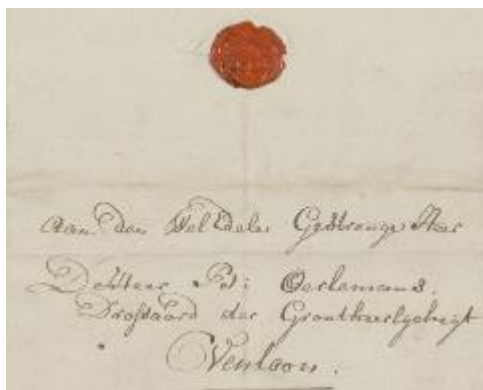 Aan den WelEdele Gestrenge Heer
P: Oerlemans.
Drossaard der Grontheerlykheyt
Venloon.